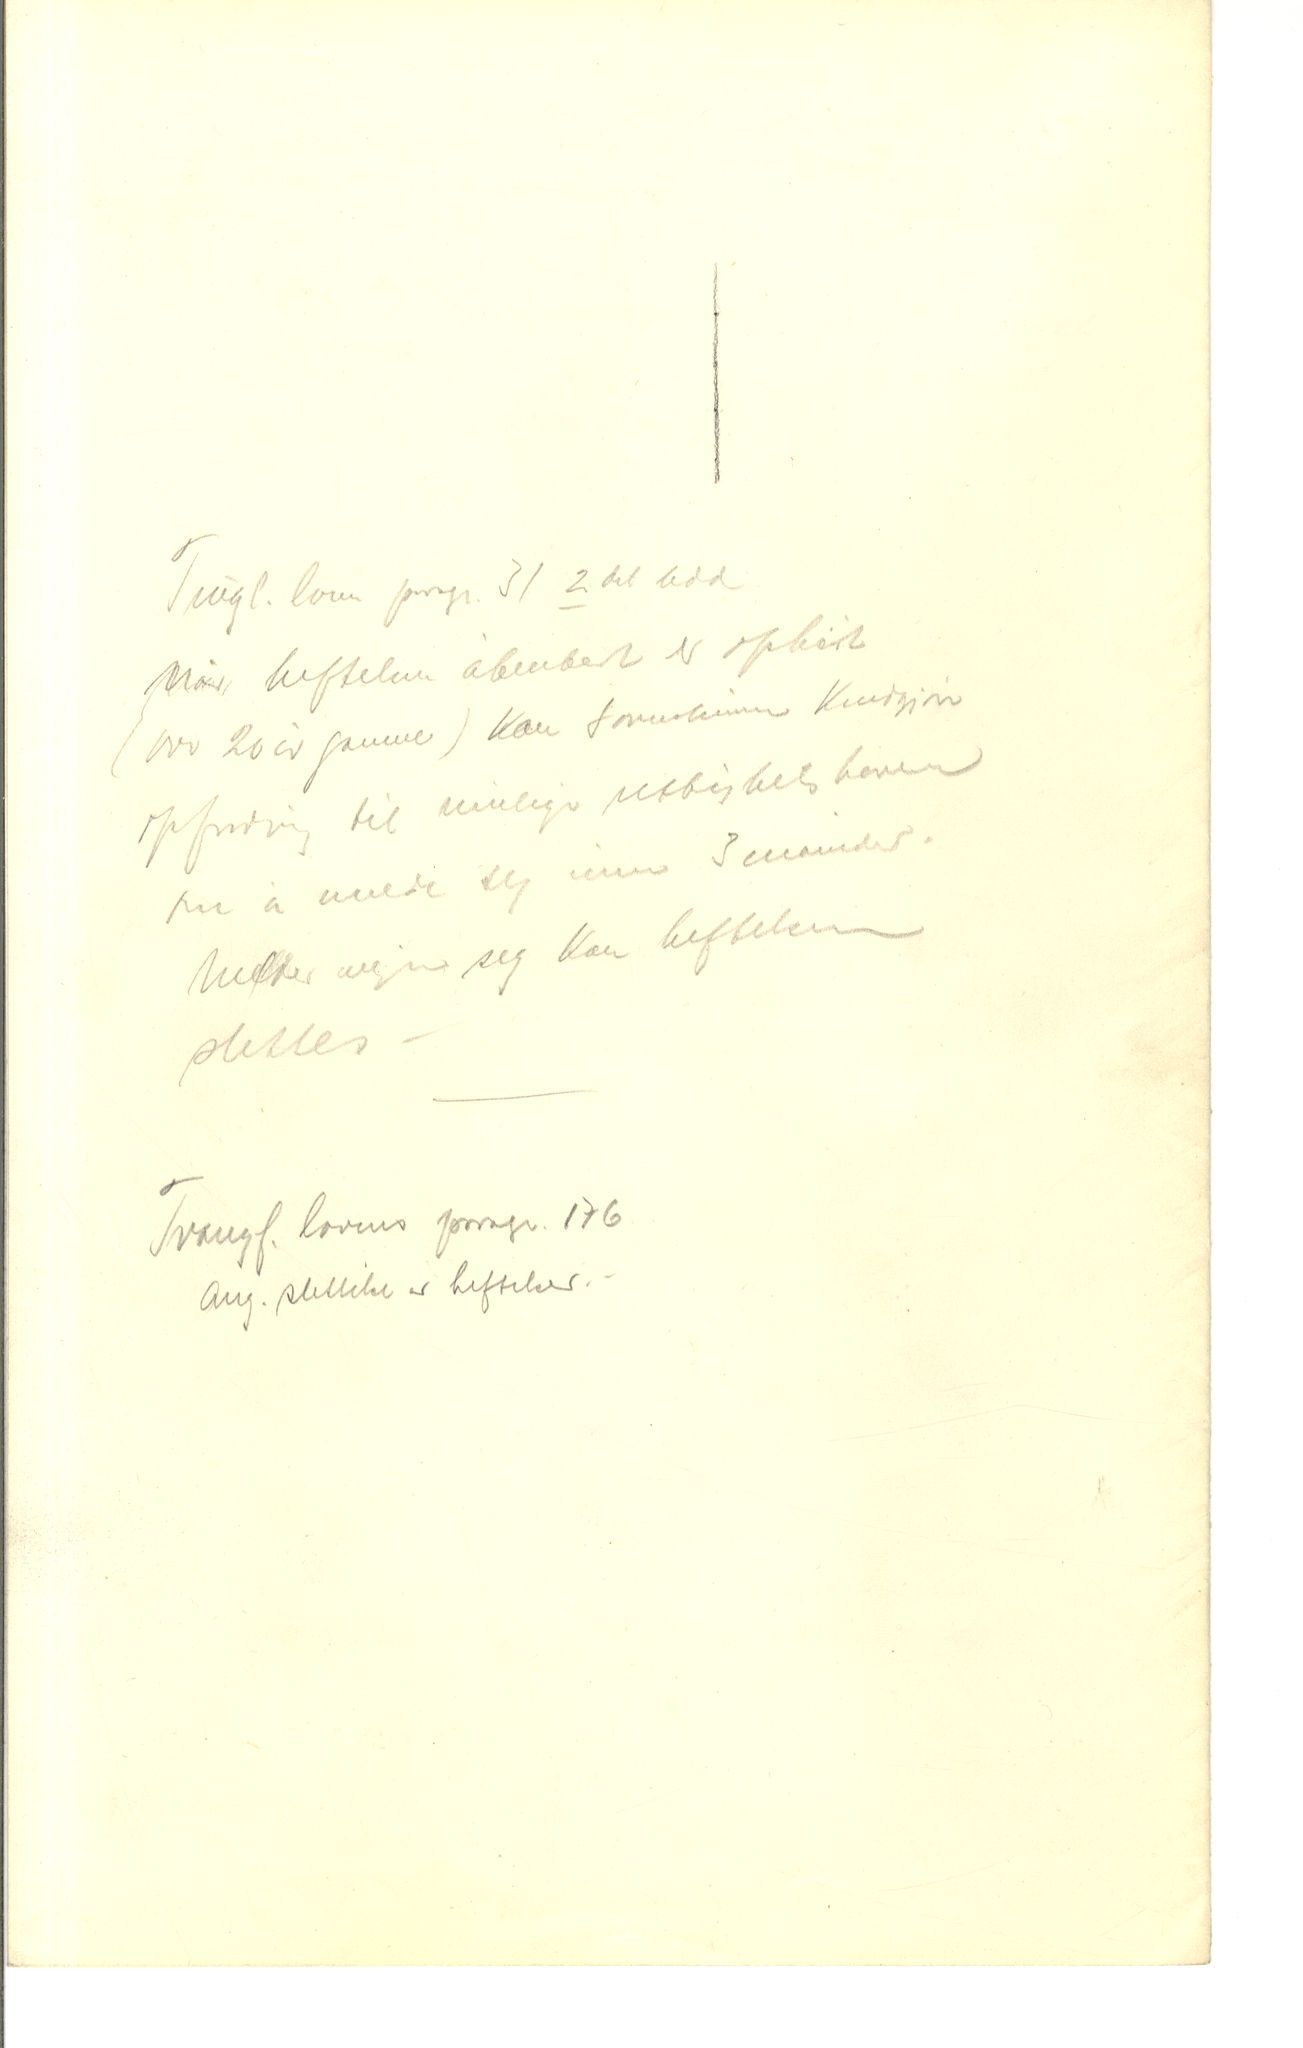 Tingl. loven paragr. 31 2det ledd
Når heftelsen åbenbart er ophørt
(over 20 år gamle) kan sorenskriveren kundgjøre
opfordring til mulige rettighetshavere
om å melde seg innen 3 måneder.
Melder ingen seg kan heftelsen
slettes –
Tvangsf. lovens paragr. 176
ang. slettelse av heftelser. –